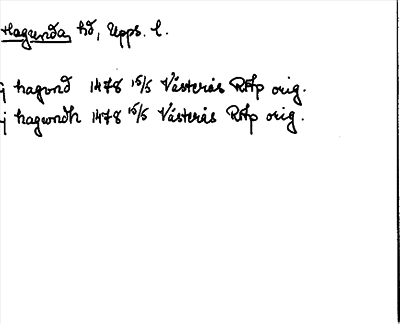 Hagunda hd, Upps. l.
j hagond 1478 15/5 Västerås RAp orig.
j hagwndh 1478 15/5 Västerås RAp orig.